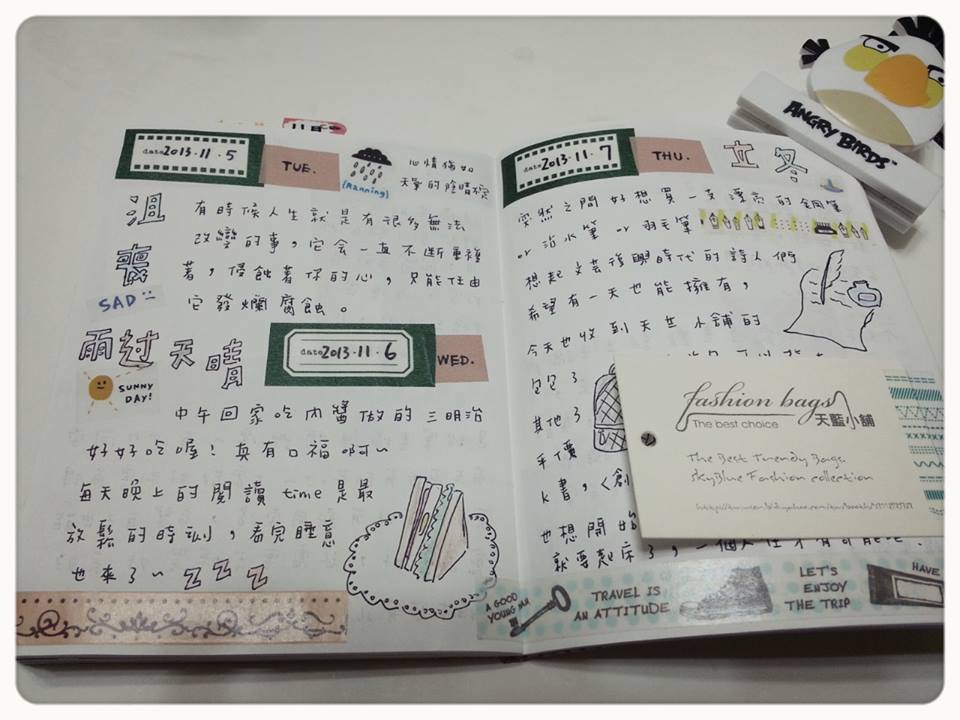 11月
date 2013.11.5
TUE.
(Raining)
心情猶如
天氣的陰晴
沮喪
SAD
有時候人生就是有很多無法
改變的事，它会一直不斷重複
著，侵蝕著你的心，只能任由
它發爛腐蝕。
雨过天晴
date 2013.11.6
WED.
SUNNY
DAY!
中午回家吃肉醬做的三明治
好好吃喔！真有口福啊～
每天晚上的閱讀 time 是最
放鬆的時刻，看完睡意
也來了～ z z z
date 2013.11.7
THU.
立冬
突然之間好想買一支漂亮的鋼筆
or 沾水筆 or 羽毛筆，
想起文芸復興時代的詩人們
希望有一天也能擁有，
今天也收到天藍小舖的
包包了
其他了
手價
k書，〈創
也想開始
就要起床了，一個人
ANGRY BIRDS™
fashion bags
The best choice
天藍小舖
The Best Trendy Bags
SkyBlue Fashion collection
A GOOD
YOUNG MA
TRAVEL IS
AN ATTITUDE
LET'S
ENJOY
THE TRIP
HAVE